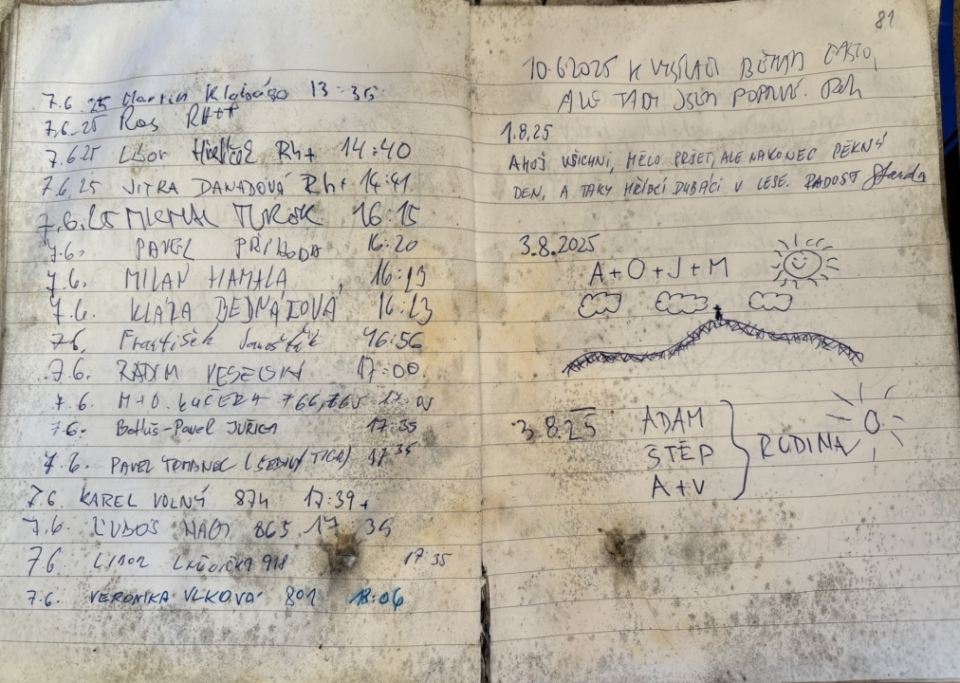 7.6.25 Martin 13:35
7.6.25 Ras RH++
7.6.25 Libor Rh+ 14:40
7.6.25 JITKA DANADOVÁ Rh+ 14:41
7.6.25 MICHAL TUROK 16:15
7.6. PAVEL PŘÍHODA 16:20
7.6. MILAN HAMALA 16:23
7.6. KLÁRA BEDNÁŘOVÁ 16:23
7.6. František 16:56
7.6. RADIM VESELSKÝ 17:00
7.6. M+O. KUČERA 766,765
7.6. Pavel JUŘICA 17:35
7.6. PAVEL TOMANEC 17:35
7.6. KAREL VOLNÝ 874 17:39
7.6. ĽUBOŠ NAGY 865 17:35
7.6 LIBOR 17:35
7.6. VERONIKA VLKOVÁ 801 18:06
81
10.6.2025 K VYSÍLAČI BĚHÁM ČASTO,
ALE TADY JSEM POPRVÉ.
1.8.25
AHOJ VŠICHNI, MĚLO PRŠET, ALE NAKONEC PĚKNÝ
DEN, A TAKY HŘÍBCI DUBÁCI V LESE. RADOST Standa
3.8.2025
A+O+J+M
3.8.25 ADAM
ŠTĚP
A+V
RODINA